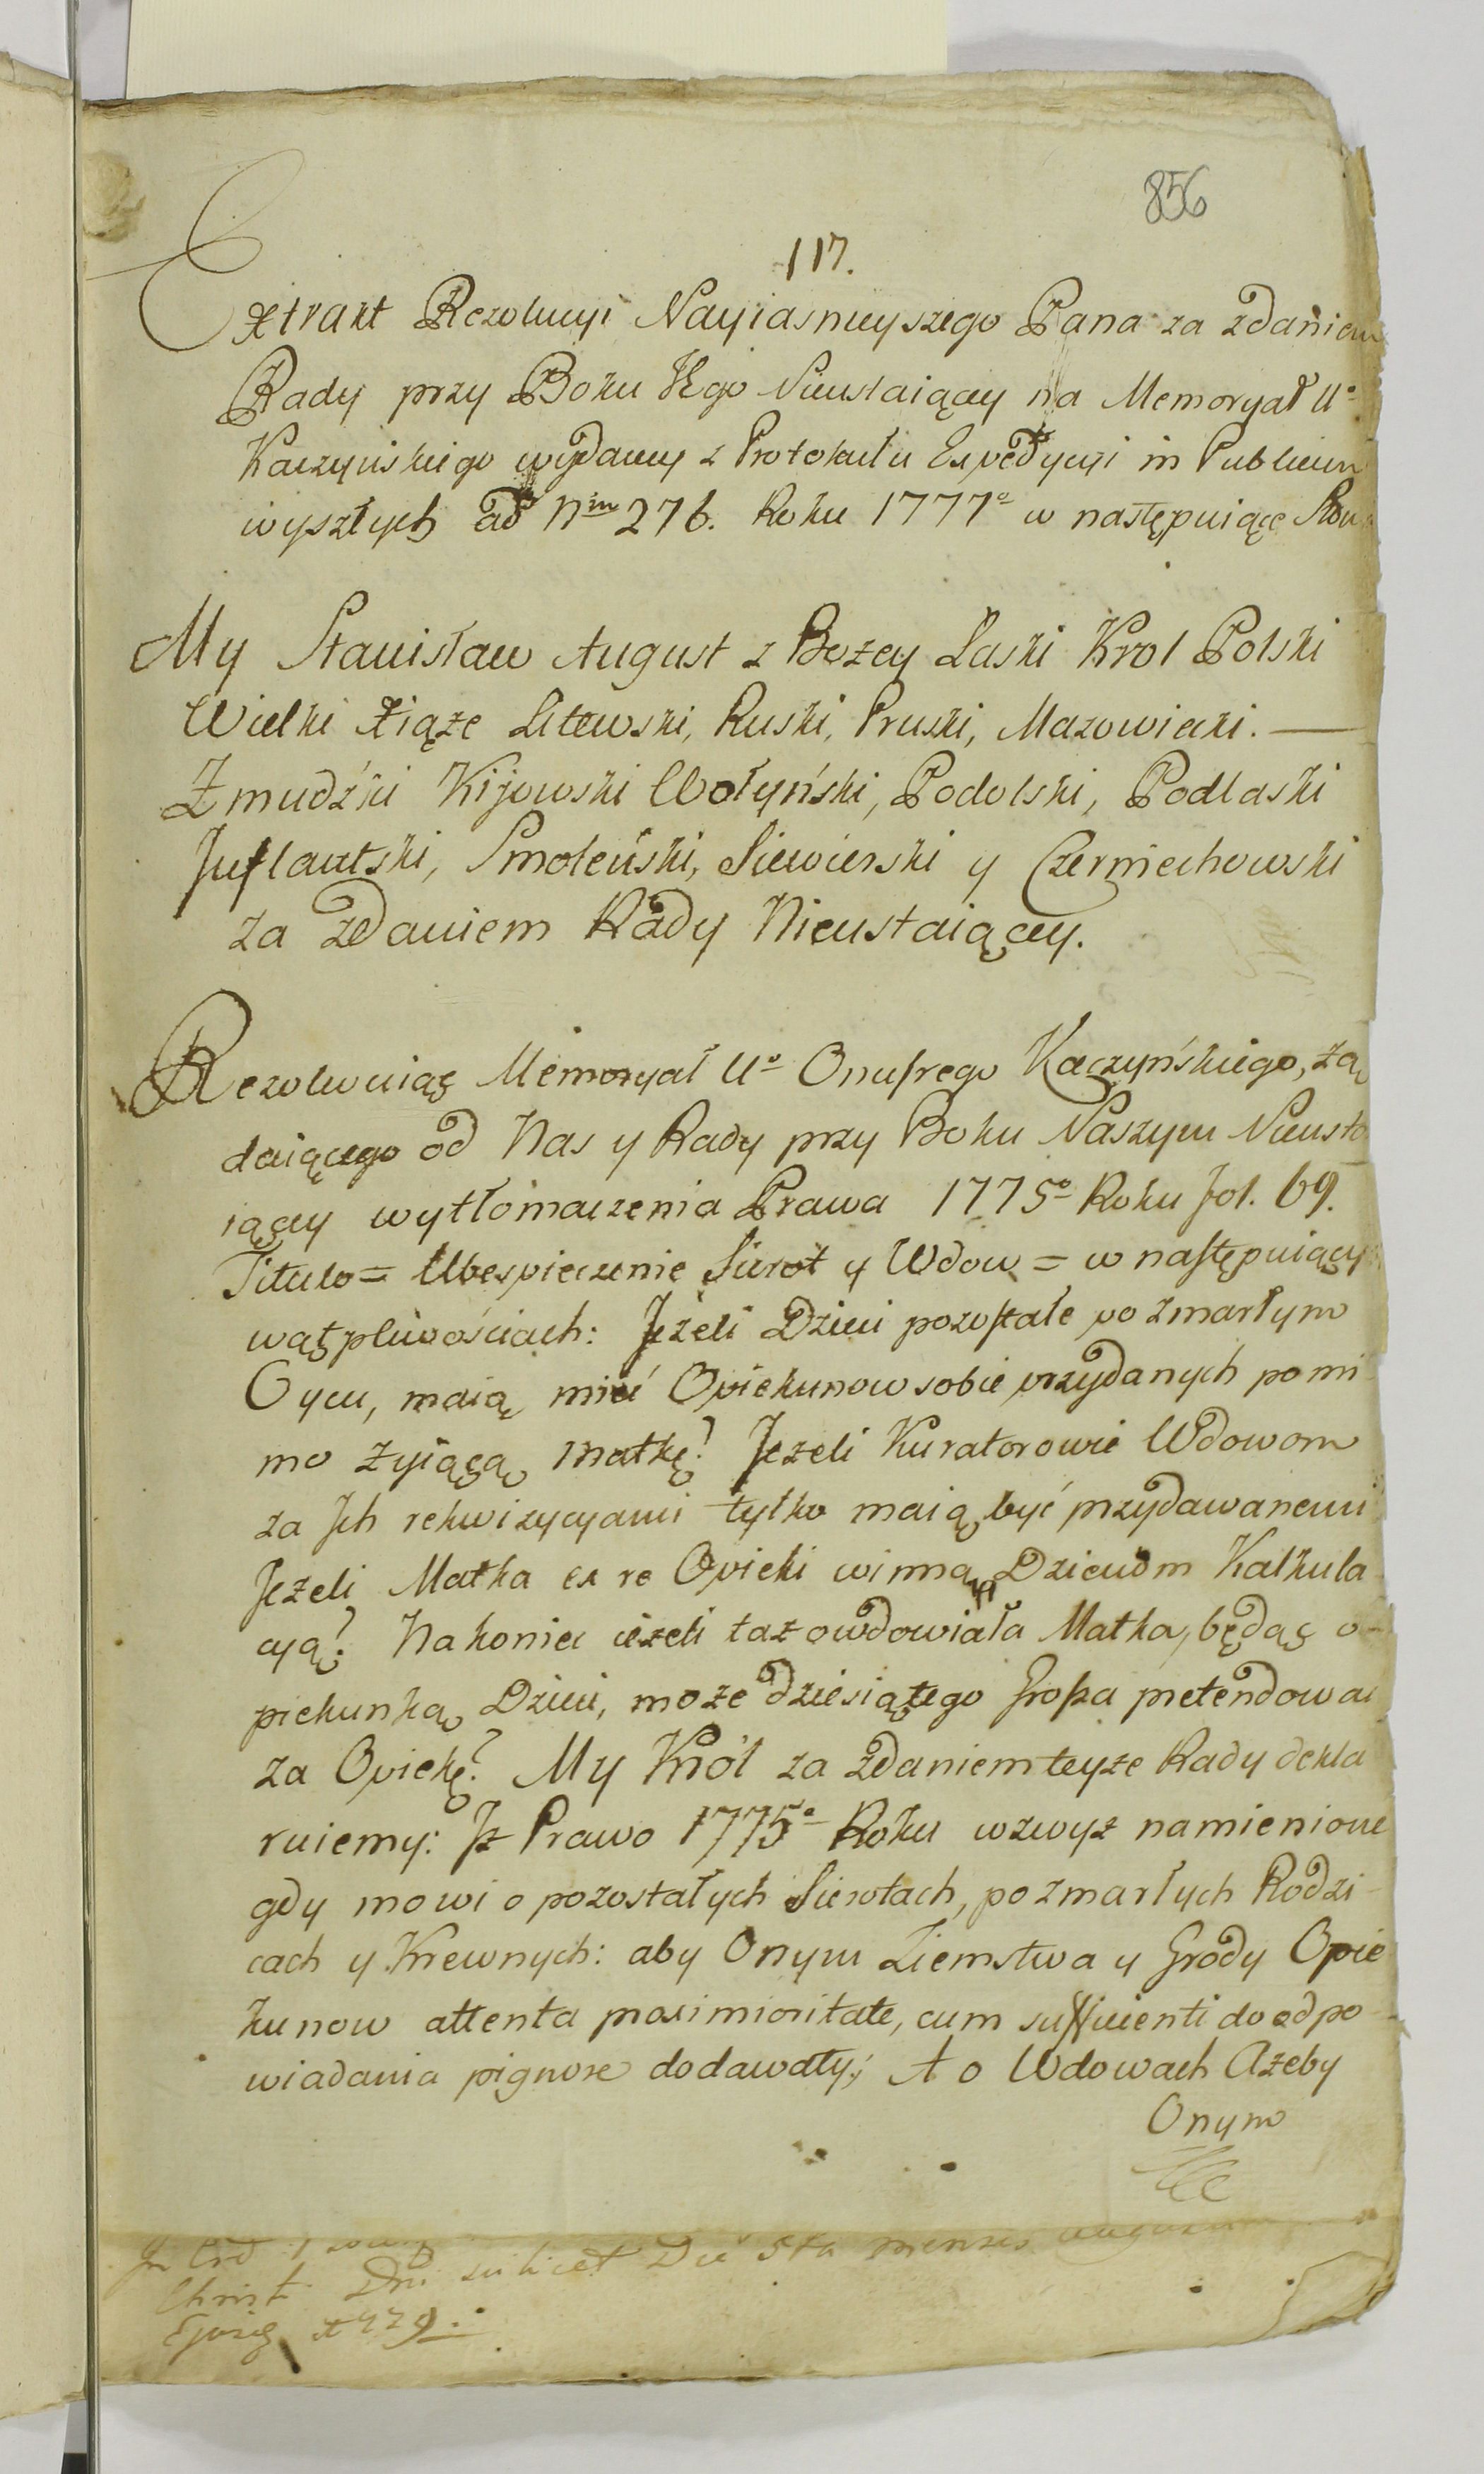 856
117.
Extrakt Rezolucyi Nayiasnieyszego Pana za zdaniem
Rady przy Boku JEgo Nieustaiącey na Memoryał Uo
Kaczyńskiego wydaney z Protokułu Expedycyi in Publicum
wyszłych ad Nrm 276. Roku 1777o w następuiące Słowa
My Stanisław August z Bożey Łaski Krol Polski
Wielki Xiąże Litewski, Ruski, Pruski, Mazowiecki. —
Zmudźki Kijowski Wołyński, Podolski, Podlaski
Juflantski, Smoleński, Siewierski y Czerniechowski
za zdaniem Rady Nieustaiącey.
Rezolwuiąc Memoryał Uo Onufrego Kaczyńskiego, żą
daiącego od Nas y Rady przy Boku Naszym Nieusta
iącey wytłomaczenia Prawa 1775o Roku fol. 69.
Titulo = Ubespieczenie Sierot y Wdow = w następuiących
wątpliwościach: Jeżeli Dzieci pozostałe po zmarłym
Oycu, maią mieć Opiekunow sobie przydanych pomi
mo żyiącą matkę? Jeżeli Kuratorowie Wdowom
za Jch rekwizycyami tylko maią być przydawanemi
Jeżeli Matka ex re Opieki winna Dzieciom Kalkula
cyą? Nakoniec ieżeli taż owdowiała Matka, będąc o-
piekunką Dzieci, może dziesiątego Grosza pretendować
za Opiekę? My Król za zdaniem teyże Rady dekla
ruiemy: Jż Prawo 1775o Roku wzwyż namienione
gdy mowi o pozostałych Sierotach, po zmarłych Rodzi-
cach y Krewnych: aby Onym Ziemstwa y Grody Opie
kunow attenta proximioritate, cum sufficienti do odpo-
wiadania pignore dodawały; A o Wdowach Ażeby
Onym
Christ Dni scilicet Die 5ta mensis Augusti